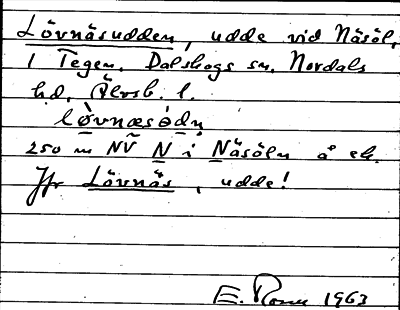 Lövnäsudden, udde vid Näsöln,
i Tegen, Dalskogs sn, Nordals
hd, Älvsb. l.
lòvnæsòdn̥
250 m NV N i Näsöln å ek.
Jfr Lövnäs, udde!
E. 1963